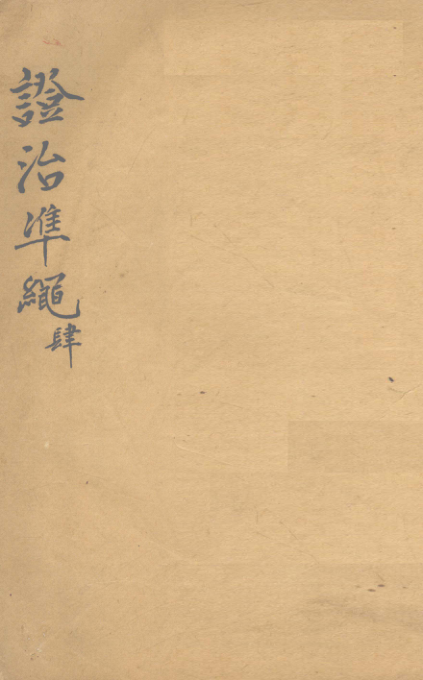 證治準繩肆